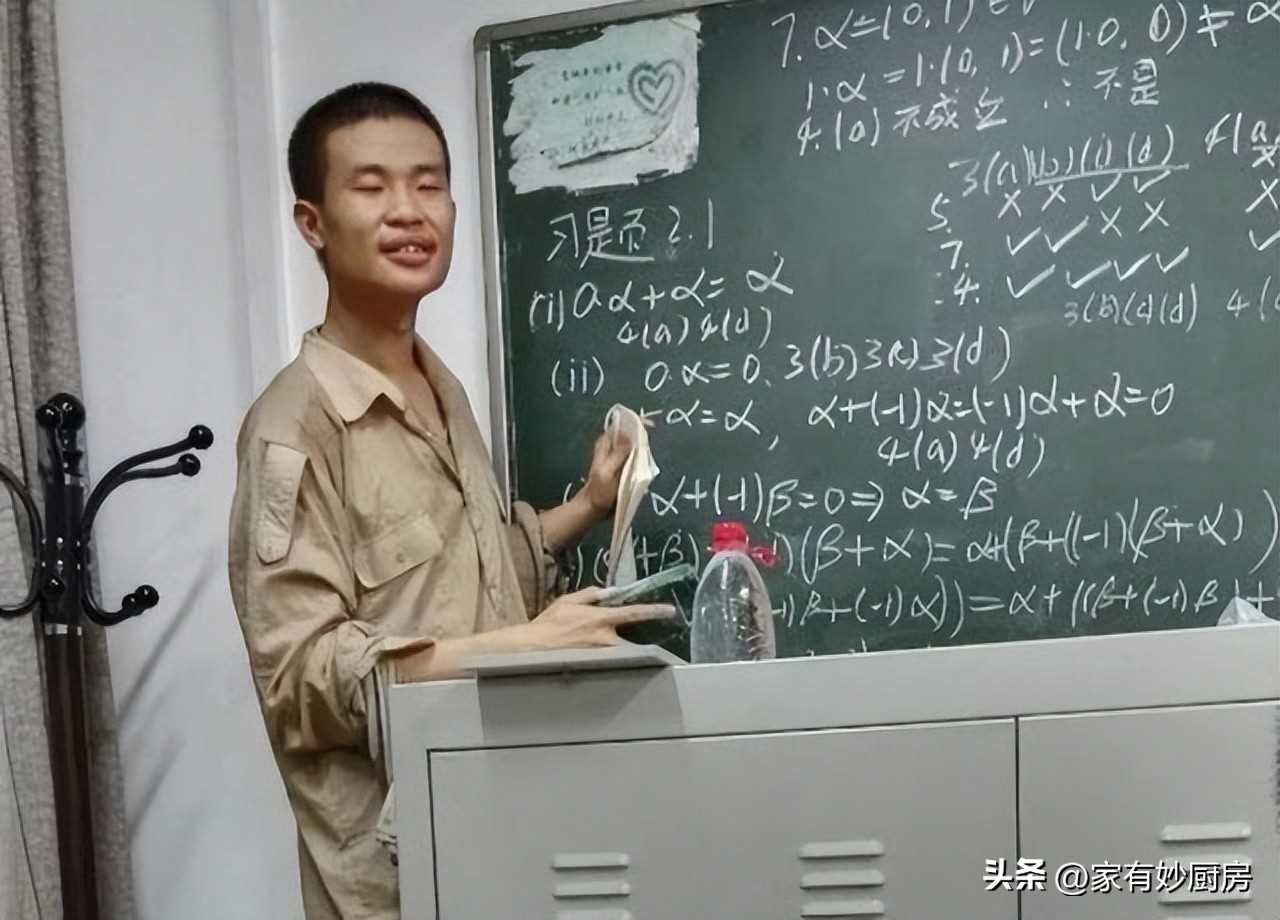 7. α=(0,1)∈V
1·α=1·(0,1)=(1·0,0)≠α
4.(a)不成立 ∴不是
3(a)(b)(c)(d) 4(a
5. × × ✓ ✓ ×
7. ✓ ✓ × × ✓
4. ✓ ✓ ✓ ✓
3(b)(c)(d) 4(
习题 2.1
(i) 0α+α=α
4(a) 4(d)
(ii) 0·α=0. 3(b) 3(c) 3(d)
α=α, α+(-1)α=(-1)α+α=0
4(a) 4(d)
α+(-1)β=0⇒α=β
+β) 1)(β+α)=α+(β+((-1)(β+α))
1)β+(-1)α))=α+((β+(-1)β)+
头条 @家有妙厨房